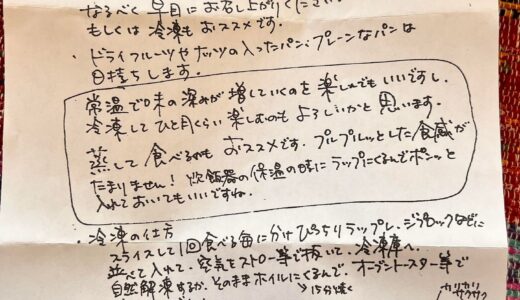 なるべく早目にお召し上がりください。
もしくは冷凍もおススメです。
・ドライフルーツやナッツの入ったパン、プレーンなパンは
日持ちします。
常温で味の深みが増していくのを楽しんでもいいですし、
冷凍してひと月くらい楽しむのもよろしいかと思います。
蒸して食べるのもおススメです。プルプルッとした食感が
たまりません!炊飯器の保温の時にラップにくるんでポンッと
入れておいてもいいですね。
・冷凍の仕方
スライスして1回食べる毎に分けぴっちりラップし、ジップロックなどに
並べて入れて、空気をストロー等で抜いて、冷凍庫へ。
自然解凍するか、そのままホイルにくるんで、オーブントースター等で
→15分焼く
カリカリ
サクサク